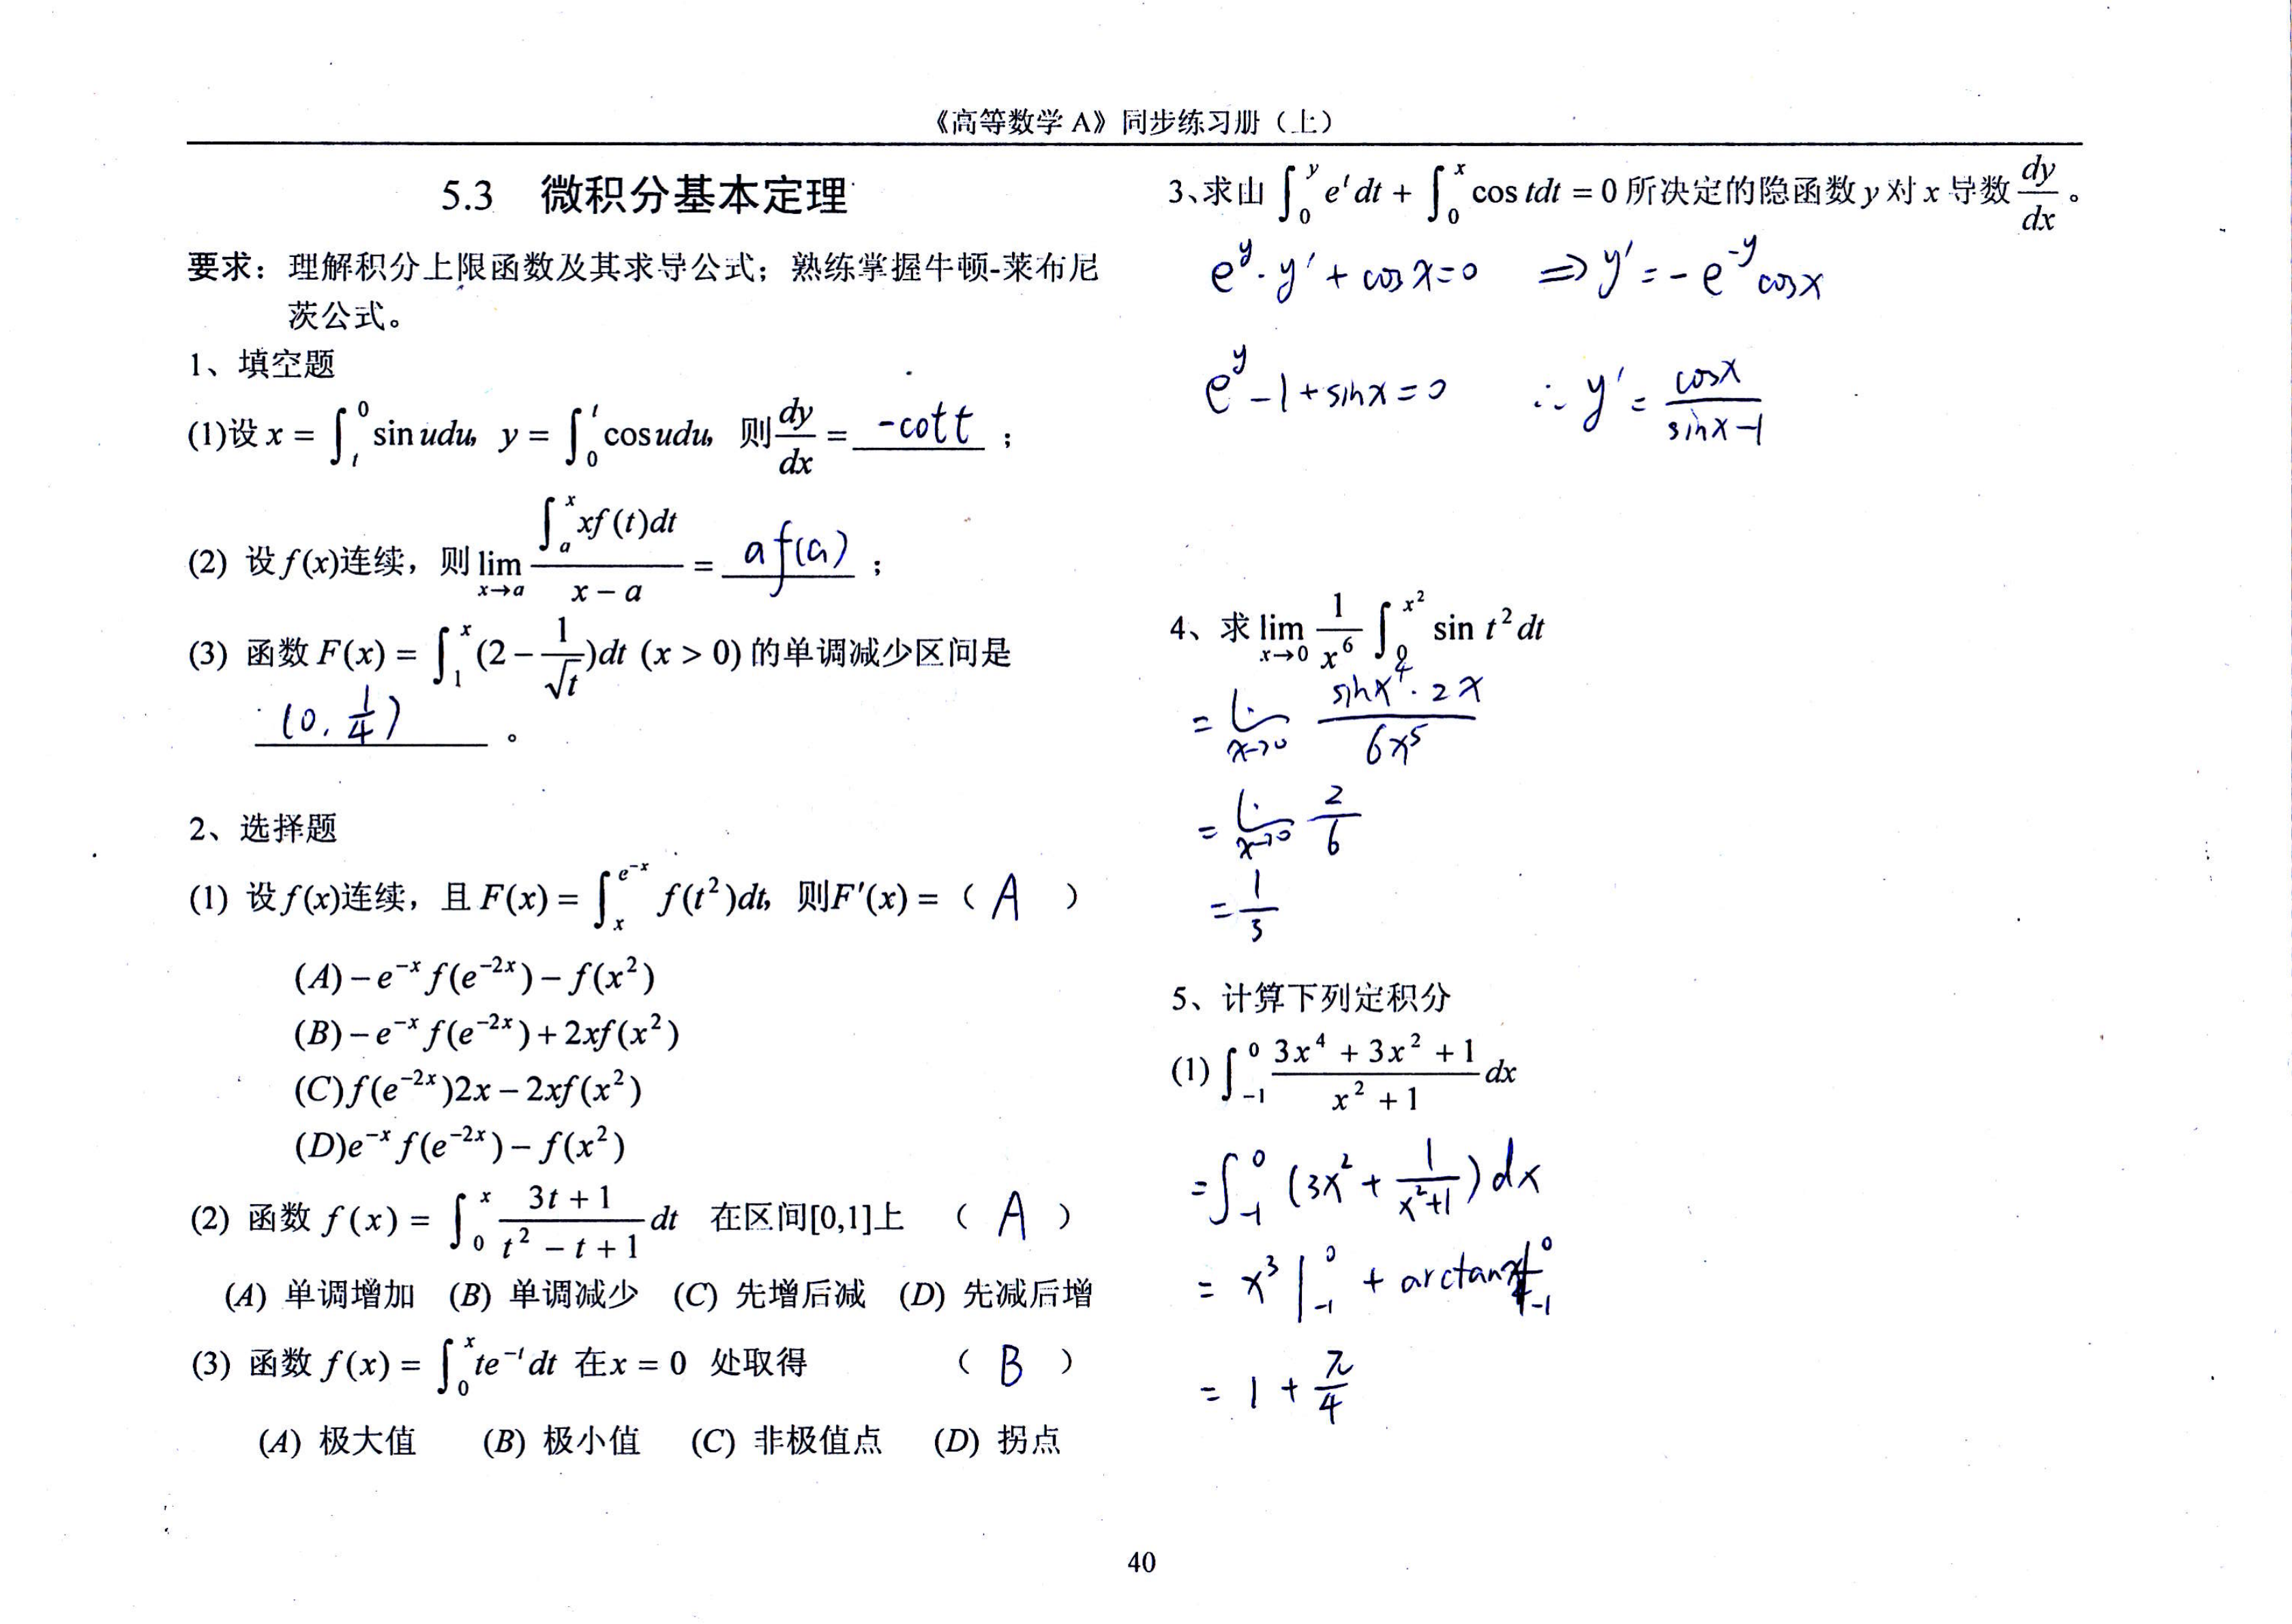 《高等数学 A》同步练习册（上）
5.3 微积分基本定理
要求：理解积分上限函数及其求导公式；熟练掌握牛顿-莱布尼
茨公式。
1、填空题
(1)设 x = ∫_t^0 sin udu, y = ∫_0^t cos udu, 则 dy/dx = -cot t ；
(2) 设 f(x)连续，则 lim_{x→a} (∫_a^x xf(t)dt)/(x − a) = af(a) ；
(3) 函数 F(x) = ∫_1^x (2 − 1/√t)dt (x > 0) 的单调减少区间是
(0, 1/4) 。
2、选择题
(1) 设 f(x)连续，且 F(x) = ∫_x^{e^{-x}} f(t²)dt, 则F′(x) = （ A ）
(A) − e^{-x} f(e^{-2x}) − f(x²)
(B) − e^{-x} f(e^{-2x}) + 2xf(x²)
(C) f(e^{-2x})2x − 2xf(x²)
(D)e^{-x} f(e^{-2x}) − f(x²)
(2) 函数 f(x) = ∫_0^x (3t + 1)/(t² − t + 1) dt 在区间[0,1]上 （ A ）
(A) 单调增加 (B) 单调减少 (C) 先增后减 (D) 先减后增
(3) 函数 f(x) = ∫_0^x te^{-t} dt 在 x = 0 处取得 （ B ）
(A) 极大值 (B) 极小值 (C) 非极值点 (D) 拐点
3、求由 ∫_0^y e^t dt + ∫_0^x cos tdt = 0 所决定的隐函数 y 对 x 导数 dy/dx 。
e^y · y′ + cos x = 0 ⇒ y′ = − e^{-y} cos x
e^y − 1 + sin x = 0 ∴ y′ = cos x/(sin x − 1)
4、求 lim_{x→0} 1/x⁶ ∫_0^{x²} sin t² dt
= lim_{x→0} (sin x⁴ · 2x)/(6x⁵)
= lim_{x→0} 2/6
= 1/3
5、计算下列定积分
(1) ∫_{-1}^0 (3x⁴ + 3x² + 1)/(x² + 1) dx
= ∫_{-1}^0 (3x² + 1/(x²+1)) dx
= x³ |_{-1}^0 + arctan x |_{-1}^0
= 1 + π/4
40